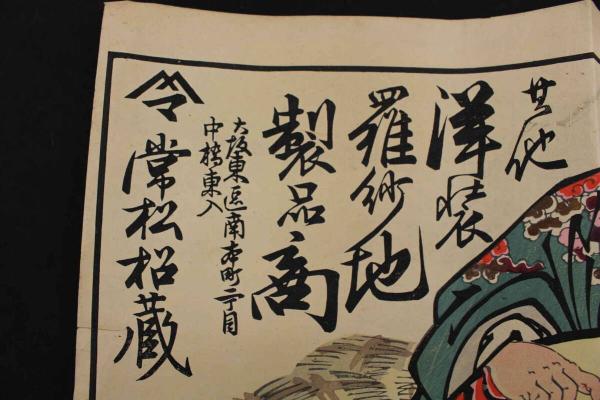 其他
洋装
羅紗地
製品商
大坂東区南本町二丁目
中橋東入
令
常松松蔵